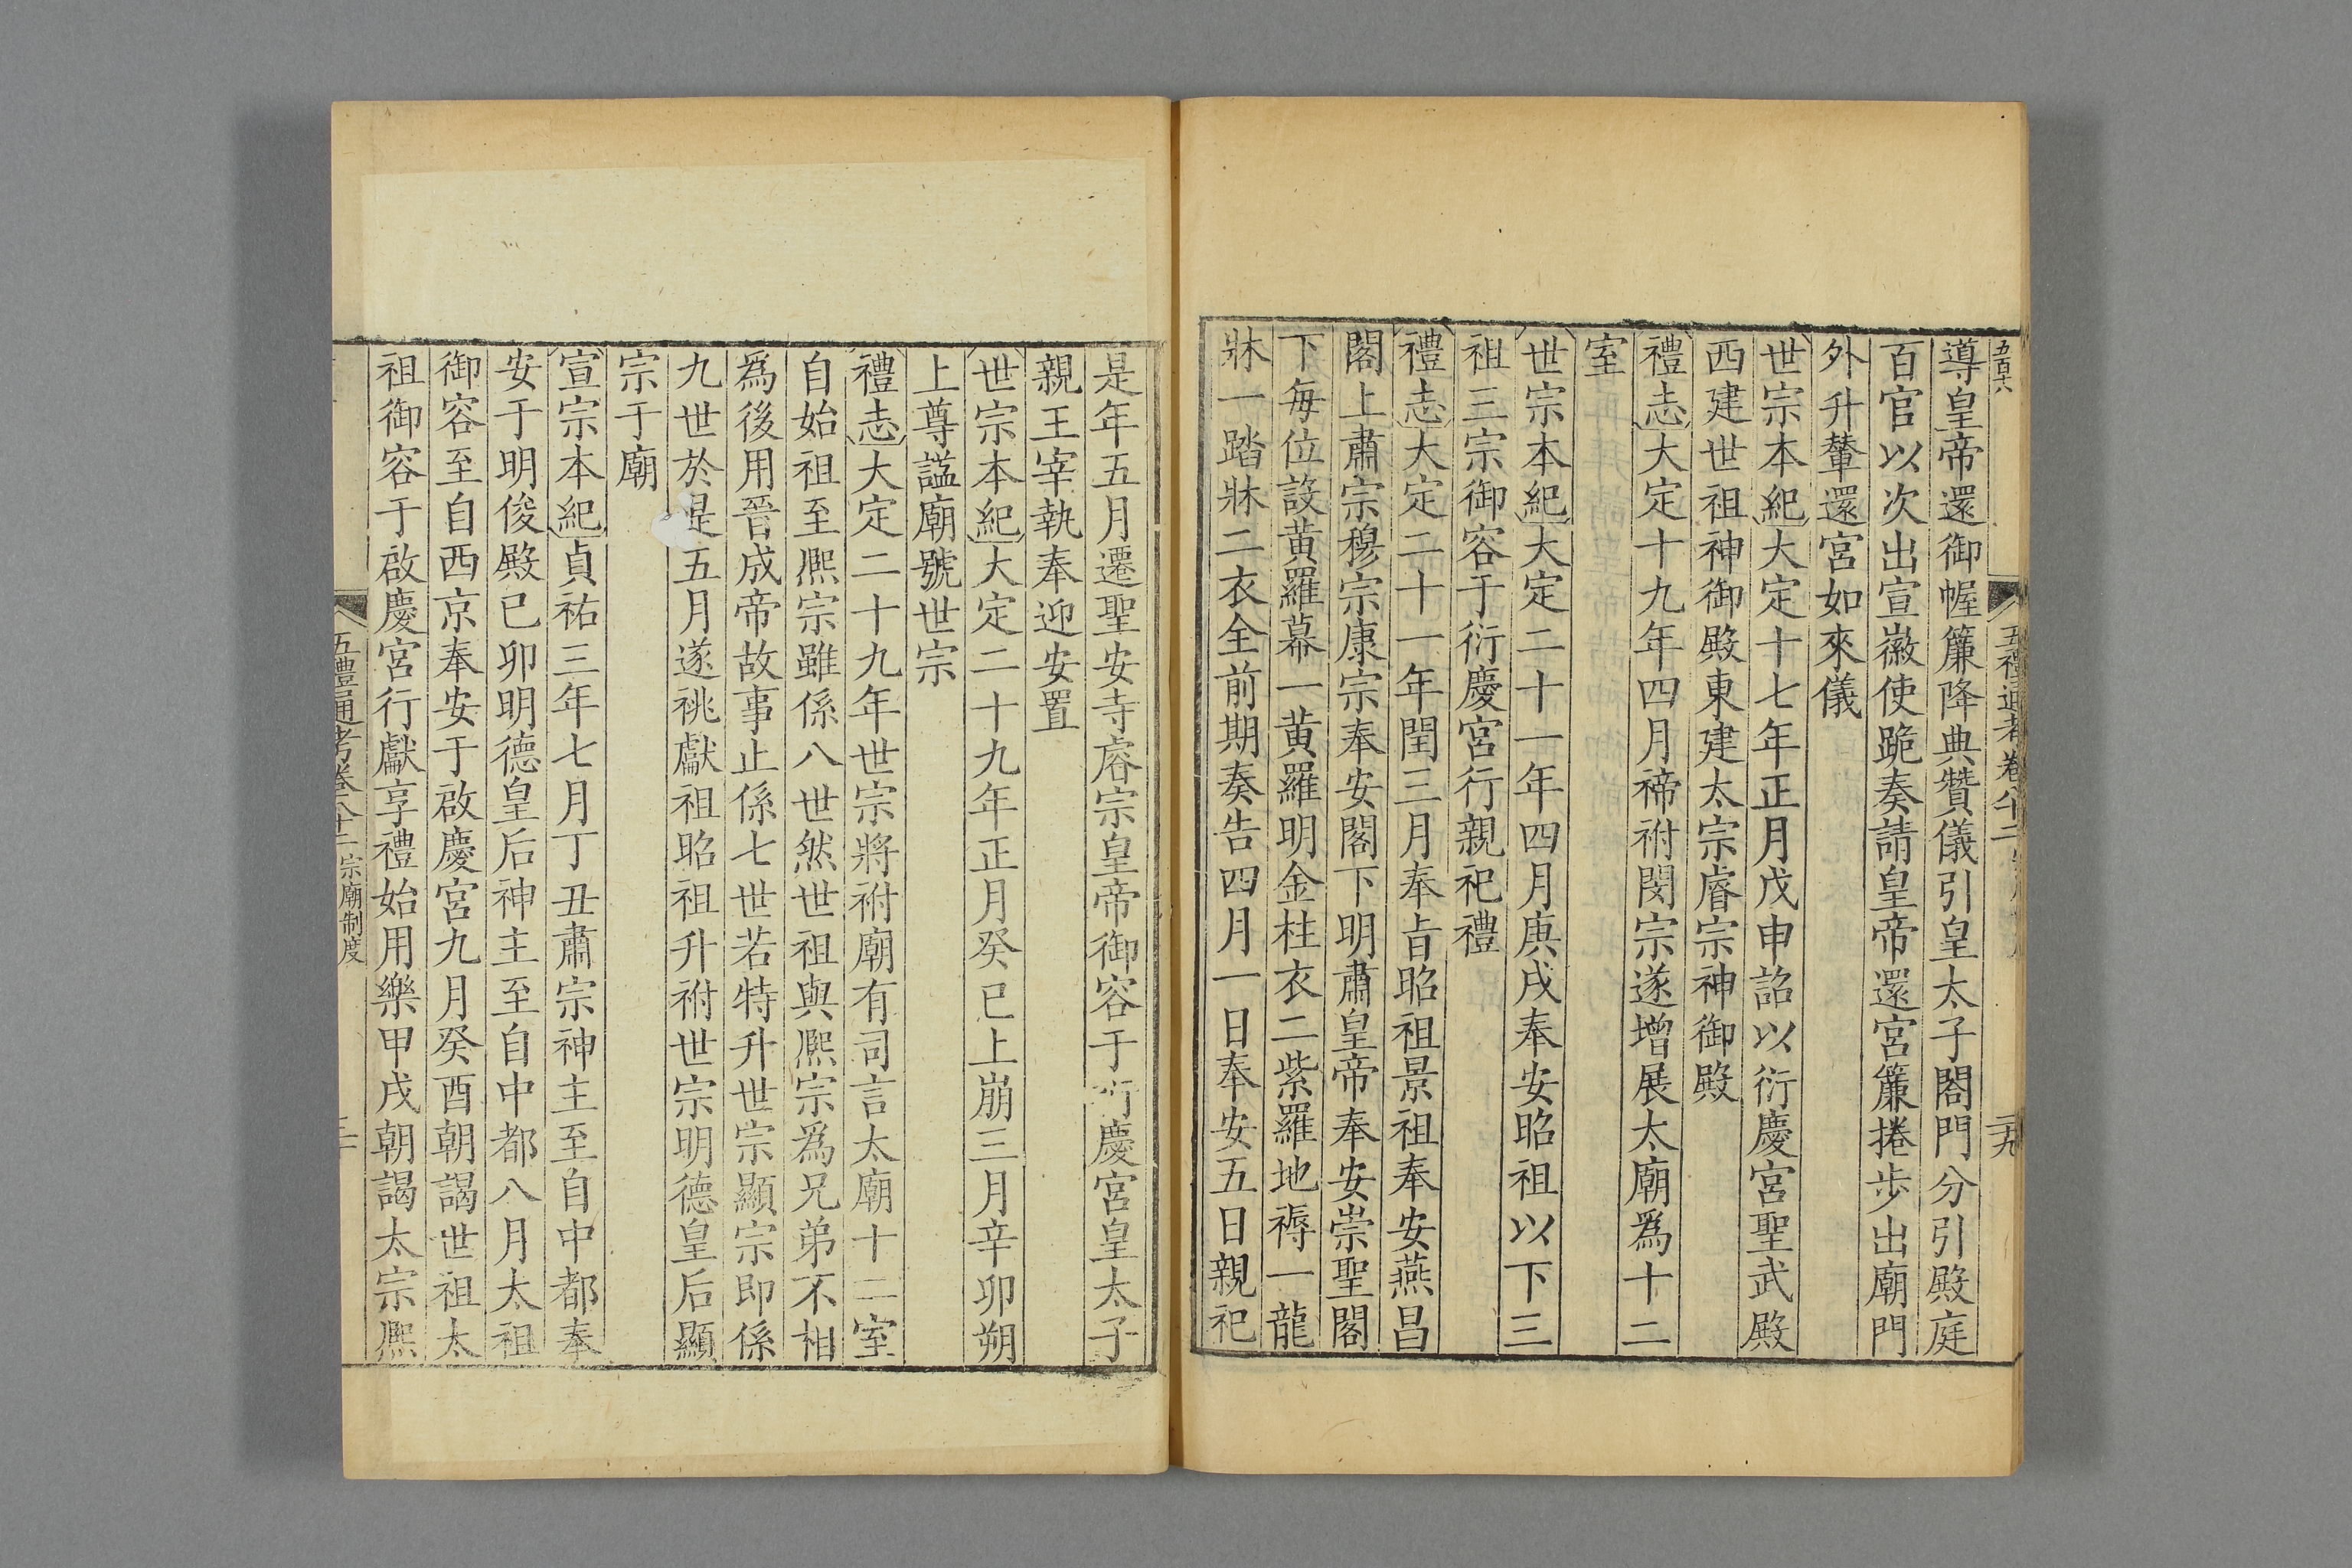 五百十六
五禮通考卷八十二
二十九
導皇帝還御幄簾降典贊儀引皇太子閤門分引殿庭
百官以次出宣徽使跪奏請皇帝還宮簾捲步出廟門
外升輦還宮如來儀
世宗本紀大定十七年正月戊申詔以衍慶宮聖武殿
西建世祖神御殿東建太宗睿宗神御殿
禮志大定十九年四月禘祔閔宗遂增展太廟爲十二
室
世宗本紀大定二十一年四月庚戌奉安昭祖以下三
祖三宗御容于衍慶宮行親祀禮
禮志大定二十一年閏三月奉㫖昭祖景祖奉安燕昌
閣上肅宗穆宗康宗奉安閣下明肅皇帝奉安崇聖閣
下每位設黃羅幕一黃羅明金柱衣二紫羅地褥一龍
牀一踏牀二衣全前期奏告四月一日奉安五日親祀
是年五月遷聖安寺睿宗皇帝御容于衍慶宮皇太子
親王宰執奉迎安置
世宗本紀大定二十九年正月癸巳上崩三月辛卯朔
上尊謚廟號世宗
禮志大定二十九年世宗將祔廟有司言太廟十二室
自始祖至熙宗雖係八世然世祖與熙宗爲兄弟不相
爲後用晉成帝故事止係七世若特升世宗顯宗即係
九世於是五月遂祧獻祖昭祖升祔世宗明德皇后顯
宗于廟
宣宗本紀貞祐三年七月丁丑肅宗神主至自中都奉
安于明俊殿已卯明德皇后神主至自中都八月太祖
御容至自西京奉安于啟慶宮九月癸酉朝謁世祖太
祖御容于啟慶宮行獻享禮始用樂甲戌朝謁太宗熙
五禮通考卷八十二 宗廟制度